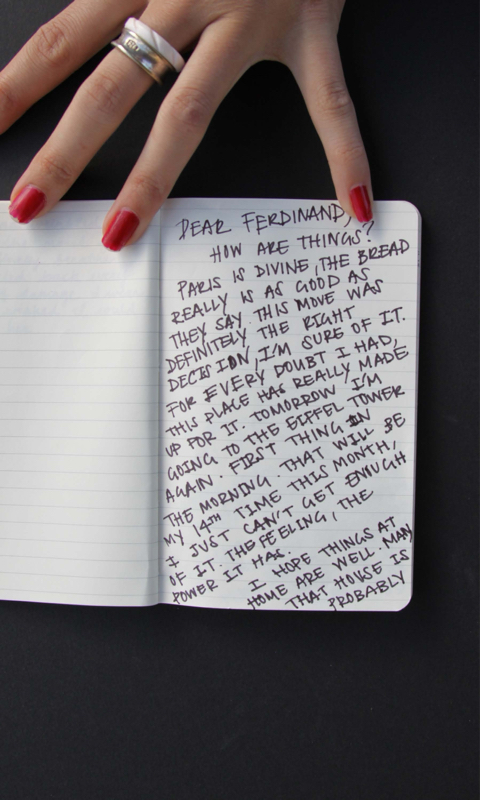 DEAR FERDINAND,
HOW ARE THINGS?
PARIS IS DIVINE, THE BREAD
REALLY IS AS GOOD AS
THEY SAY. THIS MOVE WAS
DEFINITELY THE RIGHT
DECISION, I'M SURE OF IT.
FOR EVERY DOUBT I HAD,
THIS PLACE HAS REALLY MADE
UP FOR IT. TOMORROW I'M
GOING TO THE EIFFEL TOWER
AGAIN. FIRST THING IN
THE MORNING. THAT WILL BE
MY 14TH TIME THIS MONTH,
I JUST CAN'T GET ENOUGH
OF IT. THE FEELING, THE
POWER IT HAS.
I HOPE THINGS AT
HOME ARE WELL. MAN
THAT HOUSE IS
PROBABLY